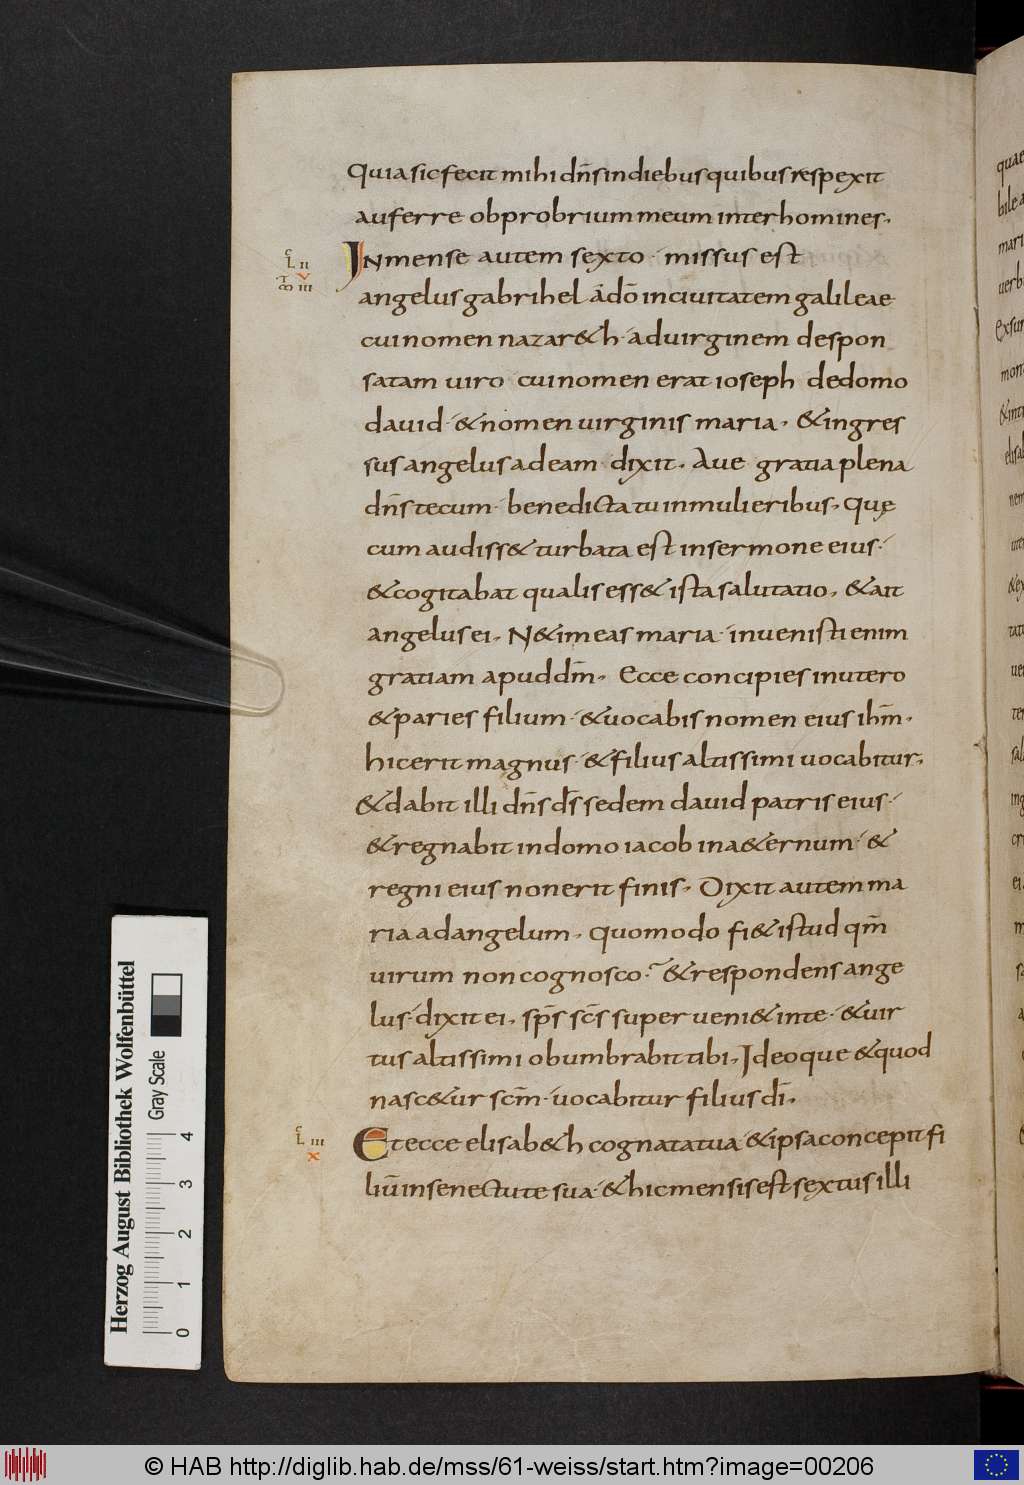 Quia sic fecit mihi dn̄s in diebus quibus respexit
auferre obprobrium meum inter homines.
L II
V
III
IN mense autem sexto · missus est
angelus gabrihel ādō in ciuitatem galileae
cui nomen nazar&h · ad uirginem despon
satam uiro cui nomen erat ioseph de domo
dauid · & nomen uirginis maria. & ingres
sus angelus ad eam dixit. Aue gratia plena
dn̄s tecum · benedicta tu in mulieribus. Quę
cum audiss& turbata est in sermone eius ·
& cogitabat qualis ess& ista salutatio. & ait
angelus ei. N& imeas maria · inuenisti enim
gratiam apud dm̄. Ecce concipies in utero
& paries filium · & uocabis nomen eius ihm̄.
hic erit magnus · & filius altissimi uocabitur.
& dabit illi dn̄s ds̄ sedem dauid patris eius ·
& regnabit in domo iacob in a&ernum · &
regni eius non erit finis. Dixit autem ma
ria ad angelum. quomodo fi& istud qm̄
uirum non cognosco? & respondens ange
lus · dixit ei. sps̄ scs̄ superueni& in te · & uir
tus altissimi obumbrabit tibi. Ideoque & quod
nasc&ur scm̄ · uocabitur filius dī.
L III
X
Et ecce elisab&h cognata tua · & ipsa concepit fi
liū in senectute sua · & hic mensis est sextus illi
quae
bile a
mari
uerb
Exsur
mon
& int
elisab
nem
& ex
Herzog August Bibliothek Wolfenbüttel
Gray Scale
0 1 2 3 4
© HAB http://diglib.hab.de/mss/61-weiss/start.htm?image=00206